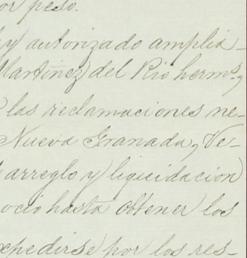 or peso.
y autorizado amplia-
Martinez del Rio herms,
las reclamaciones ne-
Nueva Granada, Ve-
arreglo y liquidacion
ocio hasta obtener los
xpedirse por los res-